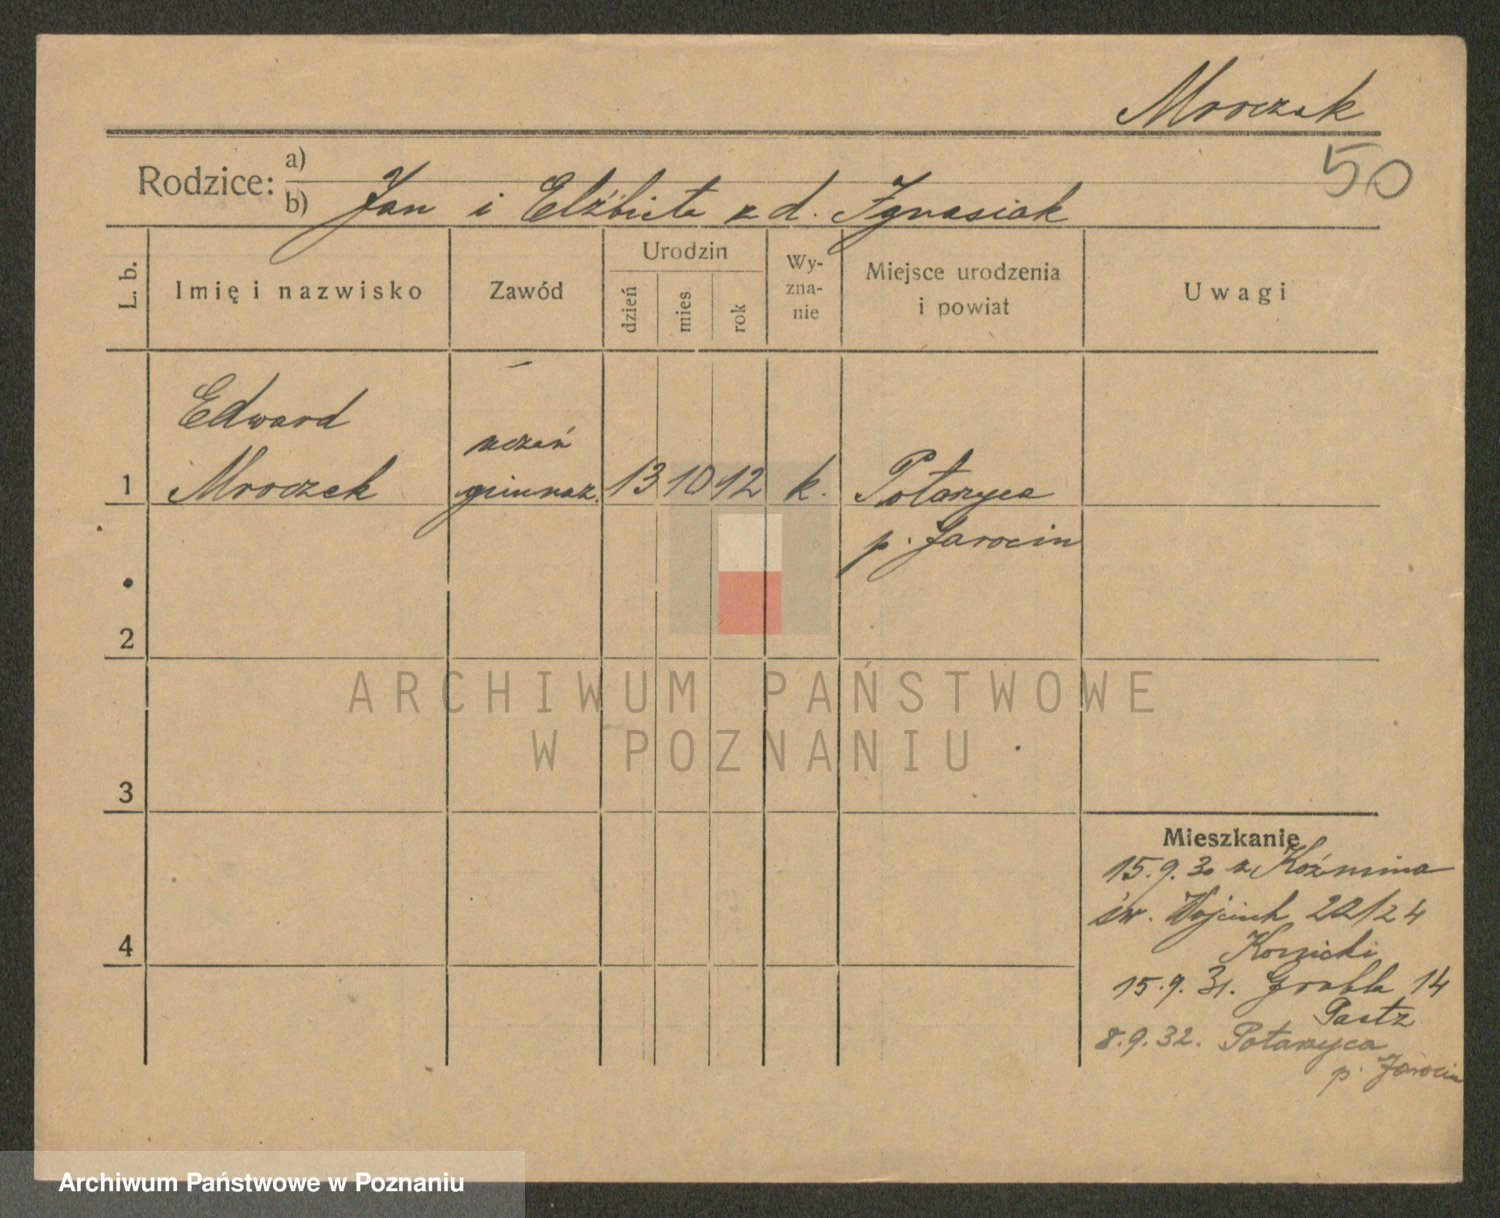 Mroczek
50
Rodzice: a)
b) Jan i Elżbieta z d. Ignasiak
L. b.
Imię i nazwisko
Zawód
Urodzin
dzień
mies.
rok
Wy-
zna-
nie
Miejsce urodzenia
i powiat
Uwagi
Edward
Mroczek
uczeń
gimnaz.
1
13 10 12 k. Potarzyca
p. Jarocin
2
3
4
Mieszkanie
15.9.30 z Koźmina
św. Wojciech 22/24
15.9.31. Grobla 14
8.9.32. Potarzyca
p. Jarocin
ARCHIWUM PAŃSTWOWE
W POZNANIU
Archiwum Państwowe w Poznaniu